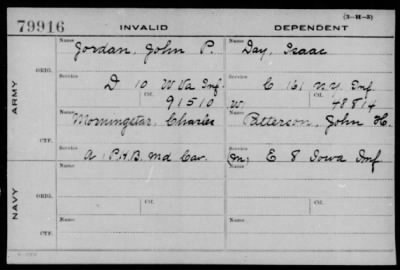 79916 INVALID DEPENDENT (3-H-3)
Name Name
Jordan, John P. Day, Isaac
ARMY
ORIG.
Service Service
D 10 W Va Inf. C 161 N.Y. Inf
Ctf. Ctf.
91510 W. 48814
Name Name
Morningstar, Charles Patterson, John H.
CTF.
Service Service
A P.H.B. Md Cav. (M) E 8 Iowa Inf
NAVY
ORIG.
Name Name
Ctf. Ctf.
CTF.
Name Name